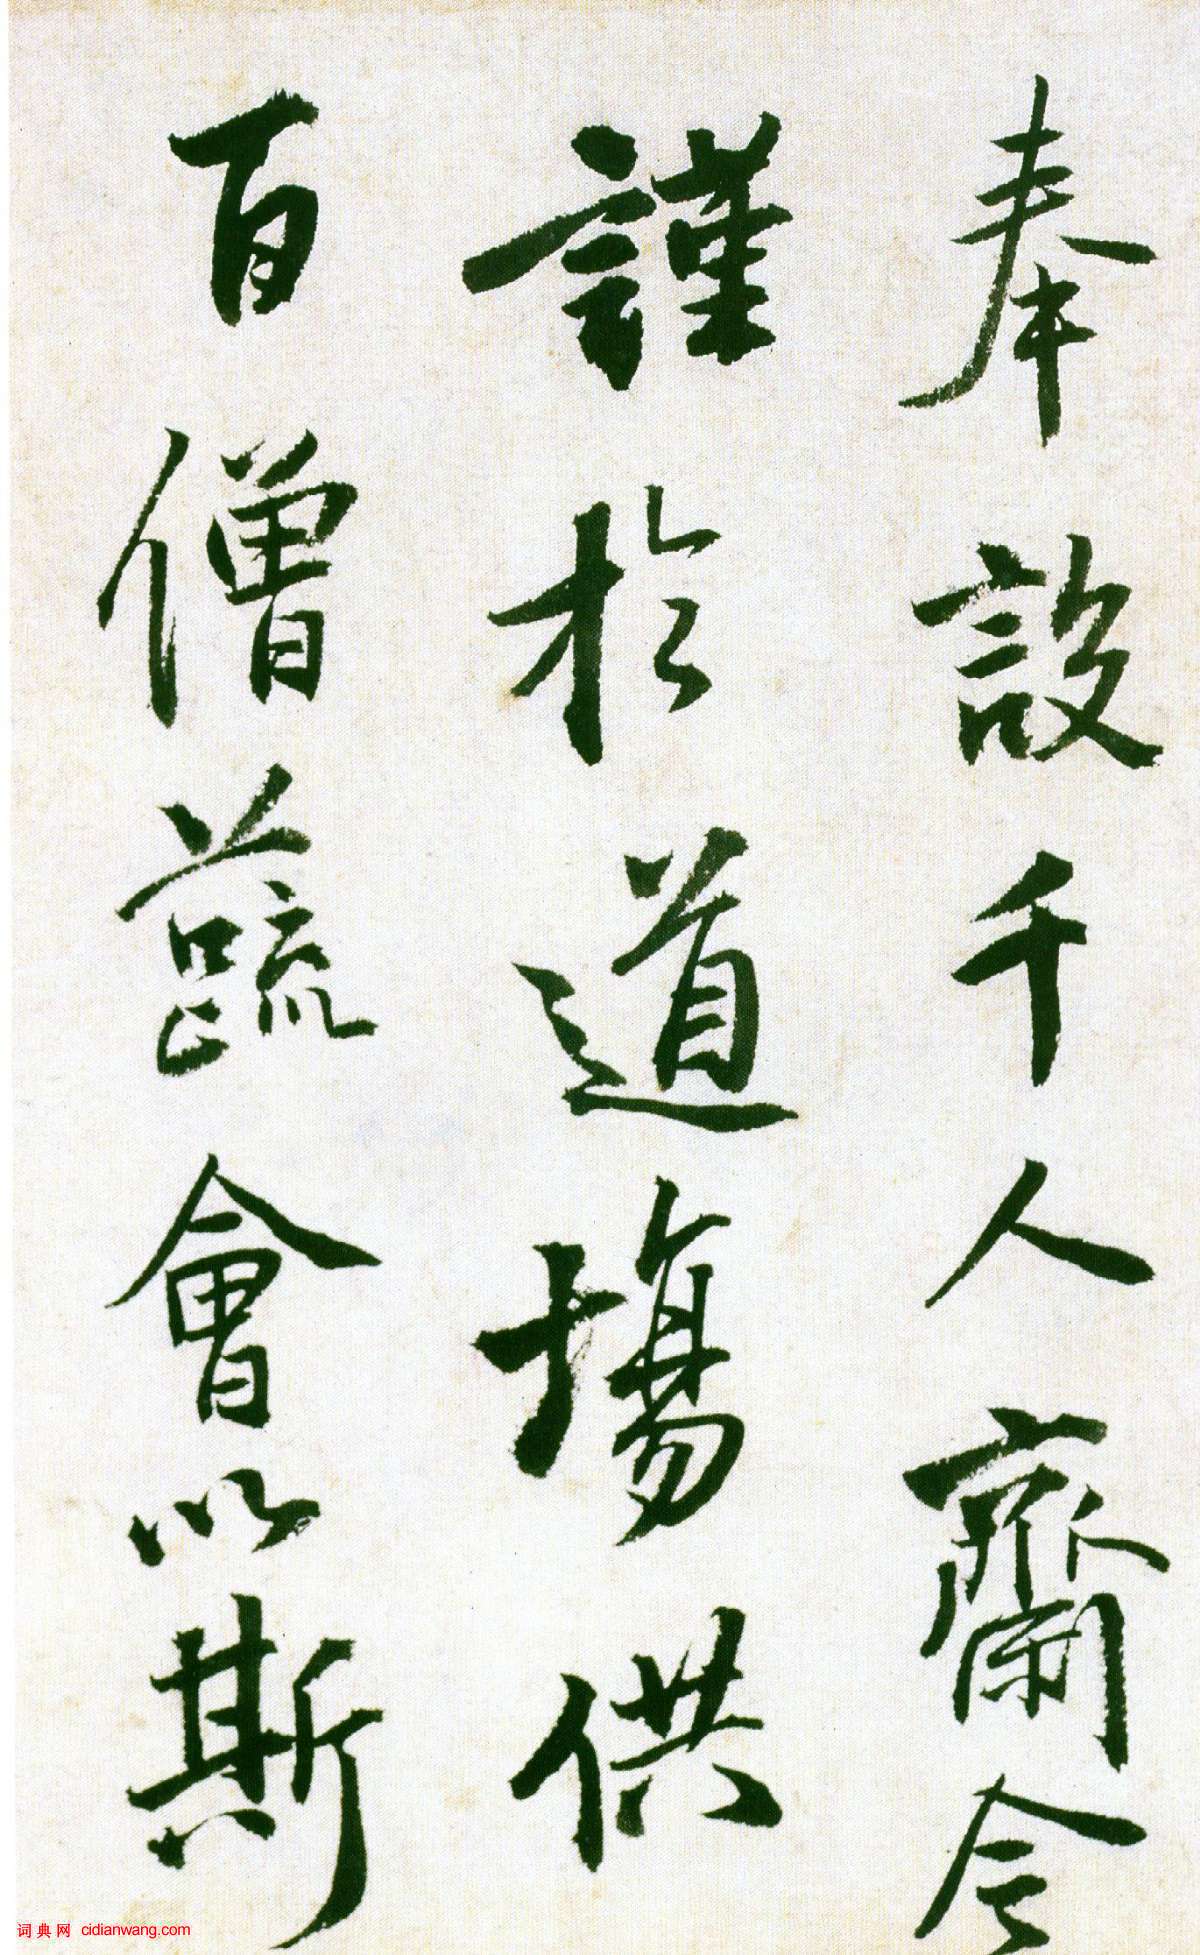 奉設千人齋今
謹於道場供
百僧蔬會以斯
词典网 cidianwang.com